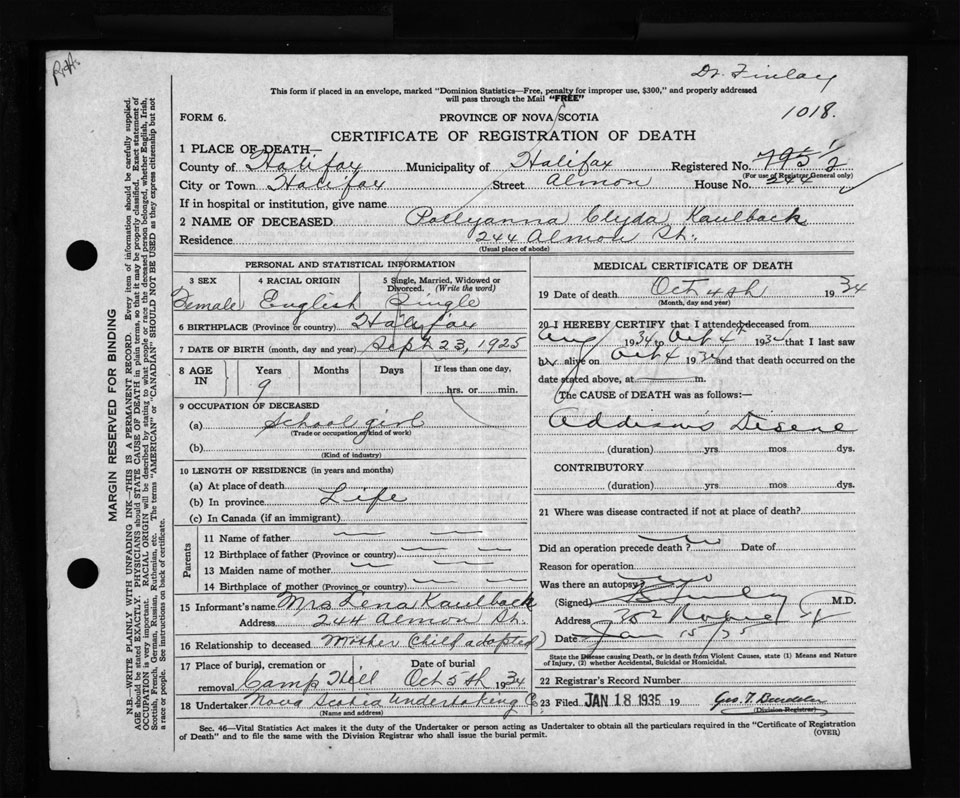 Dr. Finlay
This form if placed in an envelope, marked "Dominion Statistics—Free, penalty for improper use, $300," and properly addressed
will pass through the Mail "FREE"
1018.
FORM 6.
PROVINCE OF NOVA SCOTIA
CERTIFICATE OF REGISTRATION OF DEATH
1 PLACE OF DEATH—
County of Halifax Municipality of Halifax Registered No. 795 1/2
(For use of Registrar General only)
City or Town Halifax Street Almon House No. 244
If in hospital or institution, give name
2 NAME OF DECEASED Pollyanna Clyda Kaulback
Residence 244 Almon St.
(Usual place of abode)
PERSONAL AND STATISTICAL INFORMATION
3 SEX 4 RACIAL ORIGIN 5 Single, Married, Widowed or
Divorced. (Write the word)
Female English Single
6 BIRTHPLACE (Province or country) Halifax
7 DATE OF BIRTH (month, day and year) Sept 23, 1925
8 AGE IN Years Months Days If less than one day,
9 hrs. or min.
9 OCCUPATION OF DECEASED
(a) School girl
(Trade or occupation or kind of work)
(b)
(Kind of industry)
10 LENGTH OF RESIDENCE (in years and months)
(a) At place of death
(b) In province Life
(c) In Canada (if an immigrant)
Parents
11 Name of father
12 Birthplace of father (Province or country)
13 Maiden name of mother
14 Birthplace of mother (Province or country)
15 Informant's name Mrs Lena Kaulback
Address 244 Almon St.
16 Relationship to deceased Mother (Child adopted)
17 Place of burial, cremation or Date of burial
removal Camp Hill Oct 5th 1934
18 Undertaker Nova Scotia Undertaking Co
(Name and address)
MEDICAL CERTIFICATE OF DEATH
19 Date of death Oct 4th 1934
(Month, day and year)
20 I HEREBY CERTIFY that I attended deceased from
Aug 1934 to Oct 4th 1934 that I last saw
her alive on Oct 4 1934 and that death occurred on the
date stated above, at m.
The CAUSE of DEATH was as follows:—
Addison's Disease
(duration) yrs mos dys.
CONTRIBUTORY
(duration) yrs mos dys.
21 Where was disease contracted if not at place of death?
Did an operation precede death? no Date of
Reason for operation
Was there an autopsy no
(Signed) Finlay M.D.
Address 302 Robie St
Date Jan 15/35
State the Disease causing Death, or in death from Violent Causes, state (1) Means and Nature
of Injury, (2) whether Accidental, Suicidal or Homicidal.
22 Registrar's Record Number
23 Filed JAN 18 1935 19
(Division Registrar)
Sec. 46—Vital Statistics Act makes it the duty of the Undertaker or person acting as Undertaker to obtain all the particulars required in the "Certificate of Registration
of Death" and to file the same with the Division Registrar who shall issue the burial permit.
(OVER)
MARGIN RESERVED FOR BINDING
N.B.—WRITE PLAINLY WITH UNFADING INK—THIS IS A PERMANENT RECORD. Every item of information should be carefully supplied.
AGE should be stated EXACTLY. PHYSICIANS should STATE CAUSE OF DEATH in plain terms, so that it may be properly classified. Exact statement of
OCCUPATION is very important. RACIAL ORIGIN will be described by stating to what people or race the deceased person belonged, whether English, Irish,
Scottish, French, German, Russian, Ruthenian, etc. The terms "AMERICAN" or "CANADIAN" SHOULD NOT BE USED as they express citizenship but not
a race or people. See instructions on back of certificate.